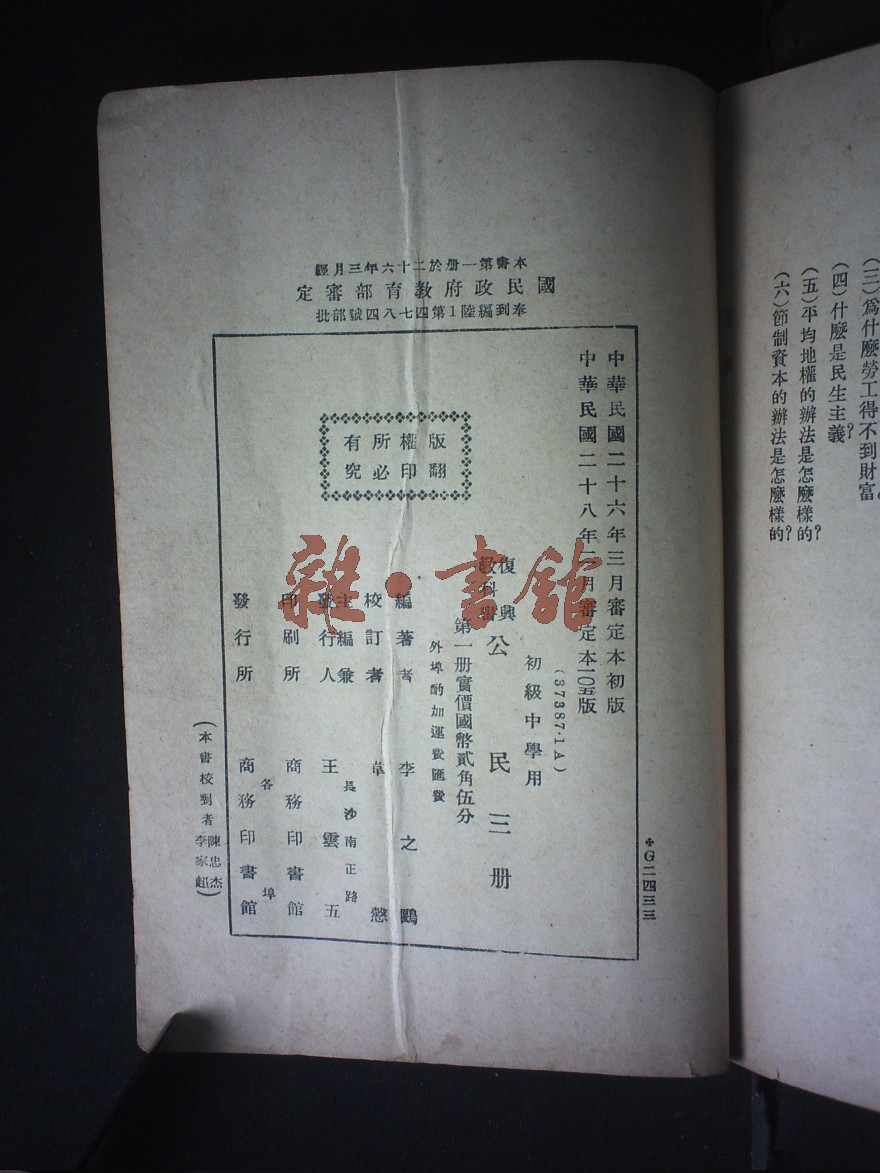 本書第一册於二十六年三月經
國民政府教育部審定
奉到編陸1第四七八四號部批
中華民國二十六年三月審定本初版
中華民國二十八年 月審定本一〇五版
(37387·1A)
初級中學用
復興教科書
公民三册
第一册實價國幣貳角伍分
外埠酌加運費匯費
版權所有
翻印必究
編著者 李之鷗
校訂者 韋愨
主編兼發行人 王雲五
長沙南正路
印刷所 商務印書館
發行所 商務印書館
各埠
(本書校對者 陳忠杰 李家超)
G二四三三
雜·書館
(三)爲什麼勞工得不到財富。
(四)什麼是民生主義?
(五)平均地權的辦法是怎麼樣的?
(六)節制資本的辦法是怎麼樣的?